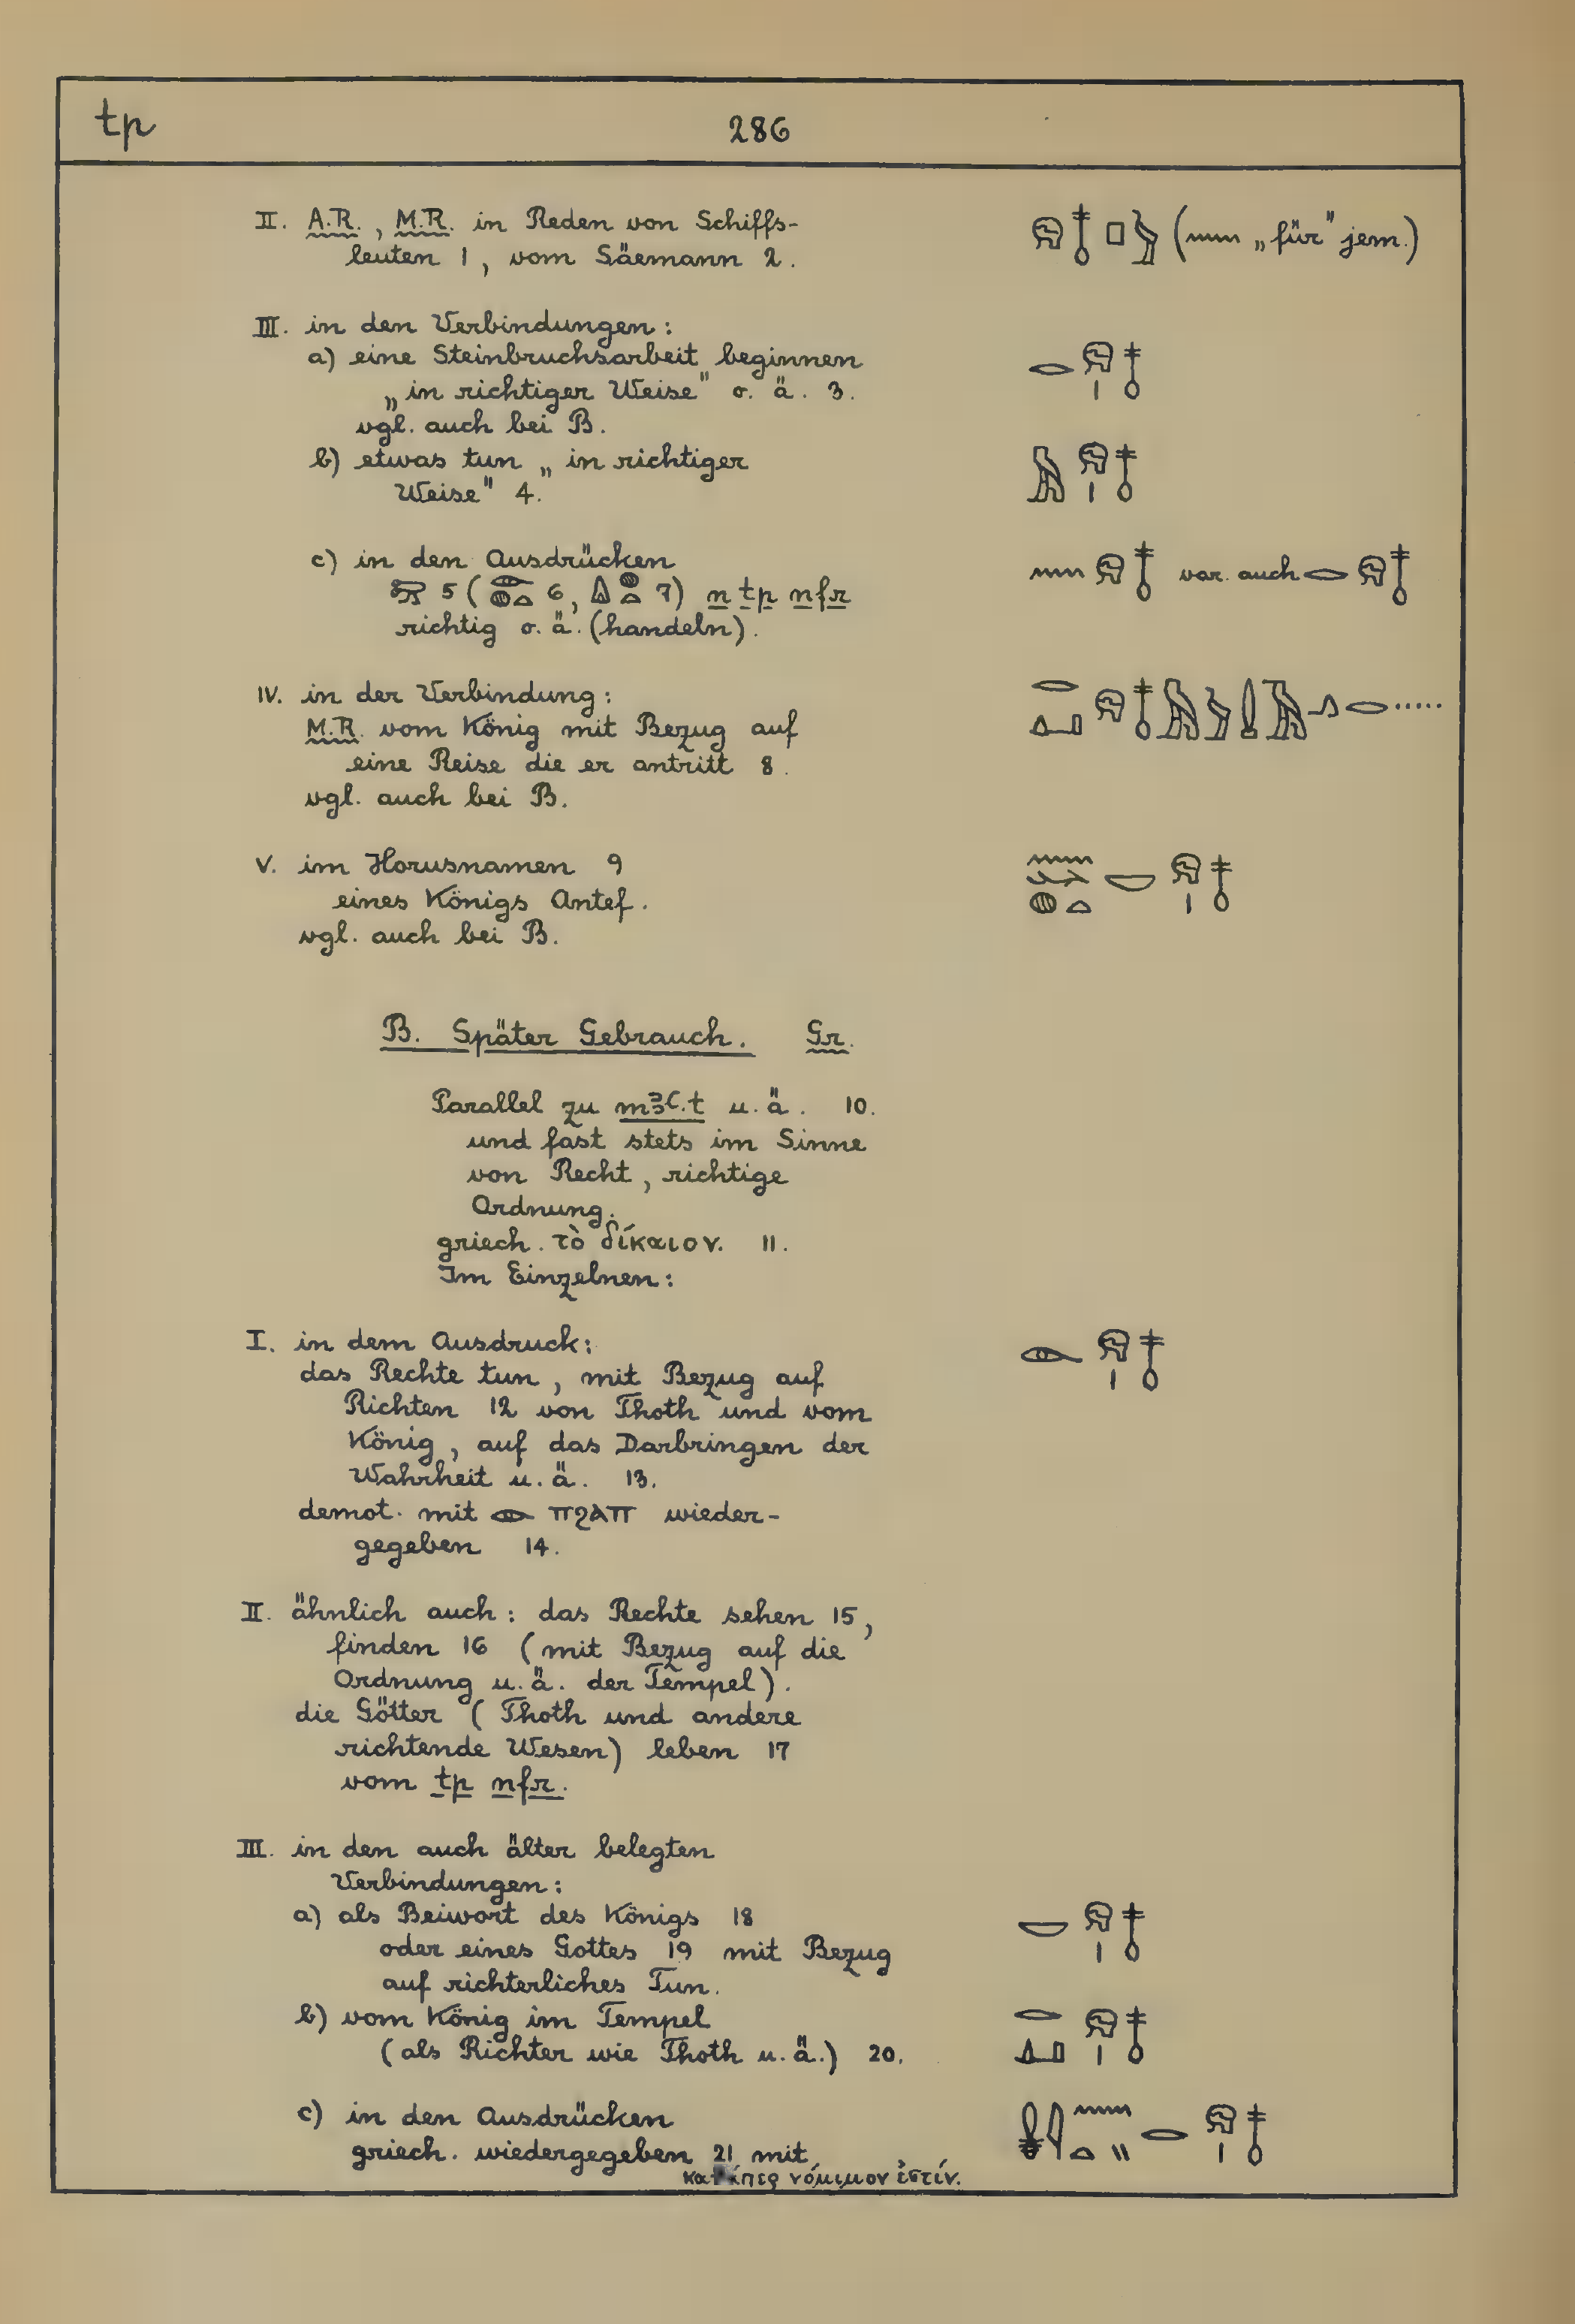 tp
286
II. A.R., M.R. in Reden von Schiffs- (𓈖 „für" jem.)
leuten 1, vom Säemann 2.
III. in den Verbindungen:
a) eine Steinbruchsarbeit beginnen 𓂋𓁶𓏤𓄤
„in richtiger Weise" o. ä. 3.
vgl. auch bei B.
b) etwas tun „in richtiger 𓅓𓁶𓏤𓄤
Weise" 4.
c) in den Ausdrücken 𓈖𓁶𓄤 var. auch 𓂋𓁶𓄤
5 ( 6, 7) n tp nfr
richtig o. ä. (handeln).
IV. in der Verbindung:
M.R. vom König mit Bezug auf
eine Reise die er antritt 8.
vgl. auch bei B.
V. im Horusnamen 9
eines Königs Antef. 𓎟𓁶𓏤𓄤
vgl. auch bei B.
B. Später Gebrauch. Gr.
Parallel zu mꜣꜥ.t u. ä. 10.
und fast stets im Sinne
von Recht, richtige
Ordnung.
griech. τὸ δίκαιον. 11.
Im Einzelnen:
I. in dem Ausdruck: 𓁹𓁶𓏤𓄤
das Rechte tun, mit Bezug auf
Richten 12 von Thoth und vom
König, auf das Darbringen der
Wahrheit u. ä. 13.
demot. mit 𓁹 ⲡϩⲁⲡ wieder-
gegeben 14.
II. ähnlich auch: das Rechte sehen 15,
finden 16 (mit Bezug auf die
Ordnung u. ä. der Tempel).
die Götter (Thoth und andere
richtende Wesen) leben 17
vom tp nfr.
III. in den auch älter belegten
Verbindungen:
a) als Beiwort des Königs 18 𓎟𓁶𓏤𓄤
oder eines Gottes 19 mit Bezug
auf richterliches Tun.
b) vom König im Tempel 𓂋𓁶𓏤𓄤
(als Richter wie Thoth u. ä.) 20.
c) in den Ausdrücken 𓂋𓁶𓏤𓄤
griech. wiedergegeben 21 mit
νόμιμον ἐστίν.